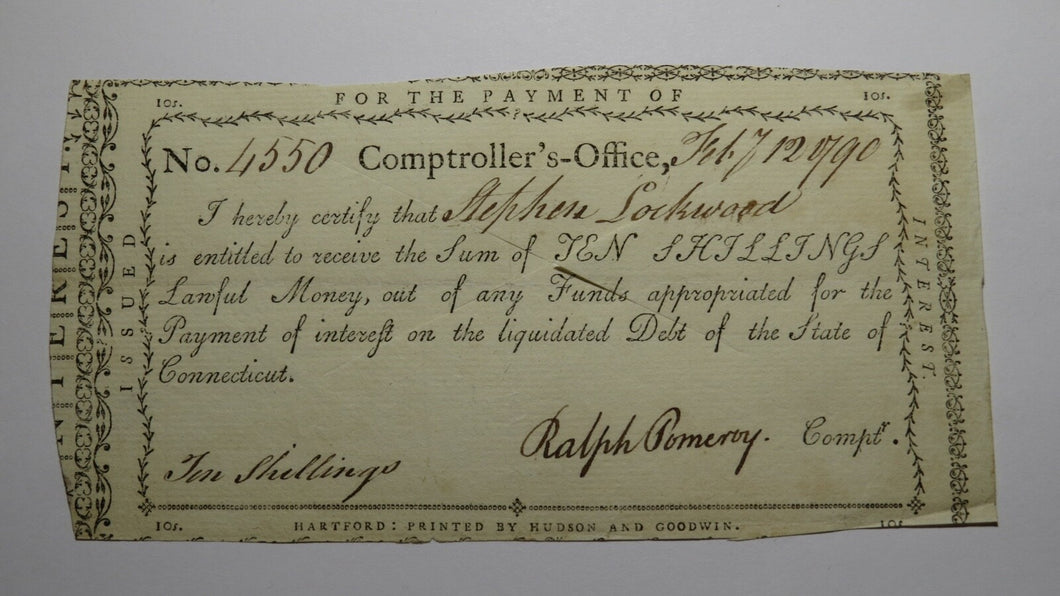 FOR THE PAYMENT OF
10s. 10s.
No. 4550 Comptroller's-Office, Feby 12 1790
I hereby certify that Stephen Lockwood
is entitled to receive the Sum of TEN SHILLINGS
Lawful Money, out of any Funds appropriated for the
Payment of intereſt on the liquidated Debt of the State of
Connecticut.
Ralph Pomeroy. Comptr.
Ten Shillings
10s. 10s
HARTFORD: PRINTED BY HUDSON AND GOODWIN.
ISSUED
INTEREST.